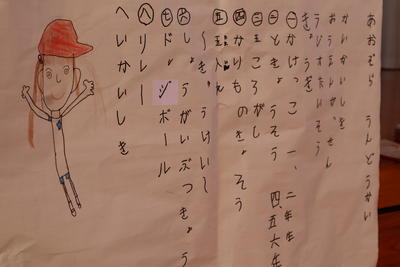 あおぞら うんどうかい
かいかいしき
ラジオたいそう
きょうぎ
一 かけっこ 一、二年生
二 ときょうそう 四、五六年生
三 玉ころがし
四 かりものきょそう
五 玉入れ
～きゅうけい～
六 しょうがいぶつきょう
七 ドッジボール
八 リレー
へいかいしき